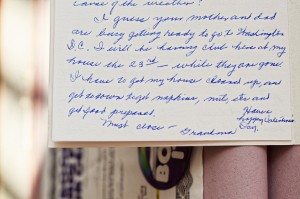 cause of the weather?
I guess your mother and dad
are busy getting ready to go to Washington
D.C. I will be having club here at my
house the 23rd – while they are gone.
I have to get my house cleaned up, and
get down high napkins, nuts etc and
get good prepared.
Have a
Happy Valentine's
Day.
Must close –
Grandma